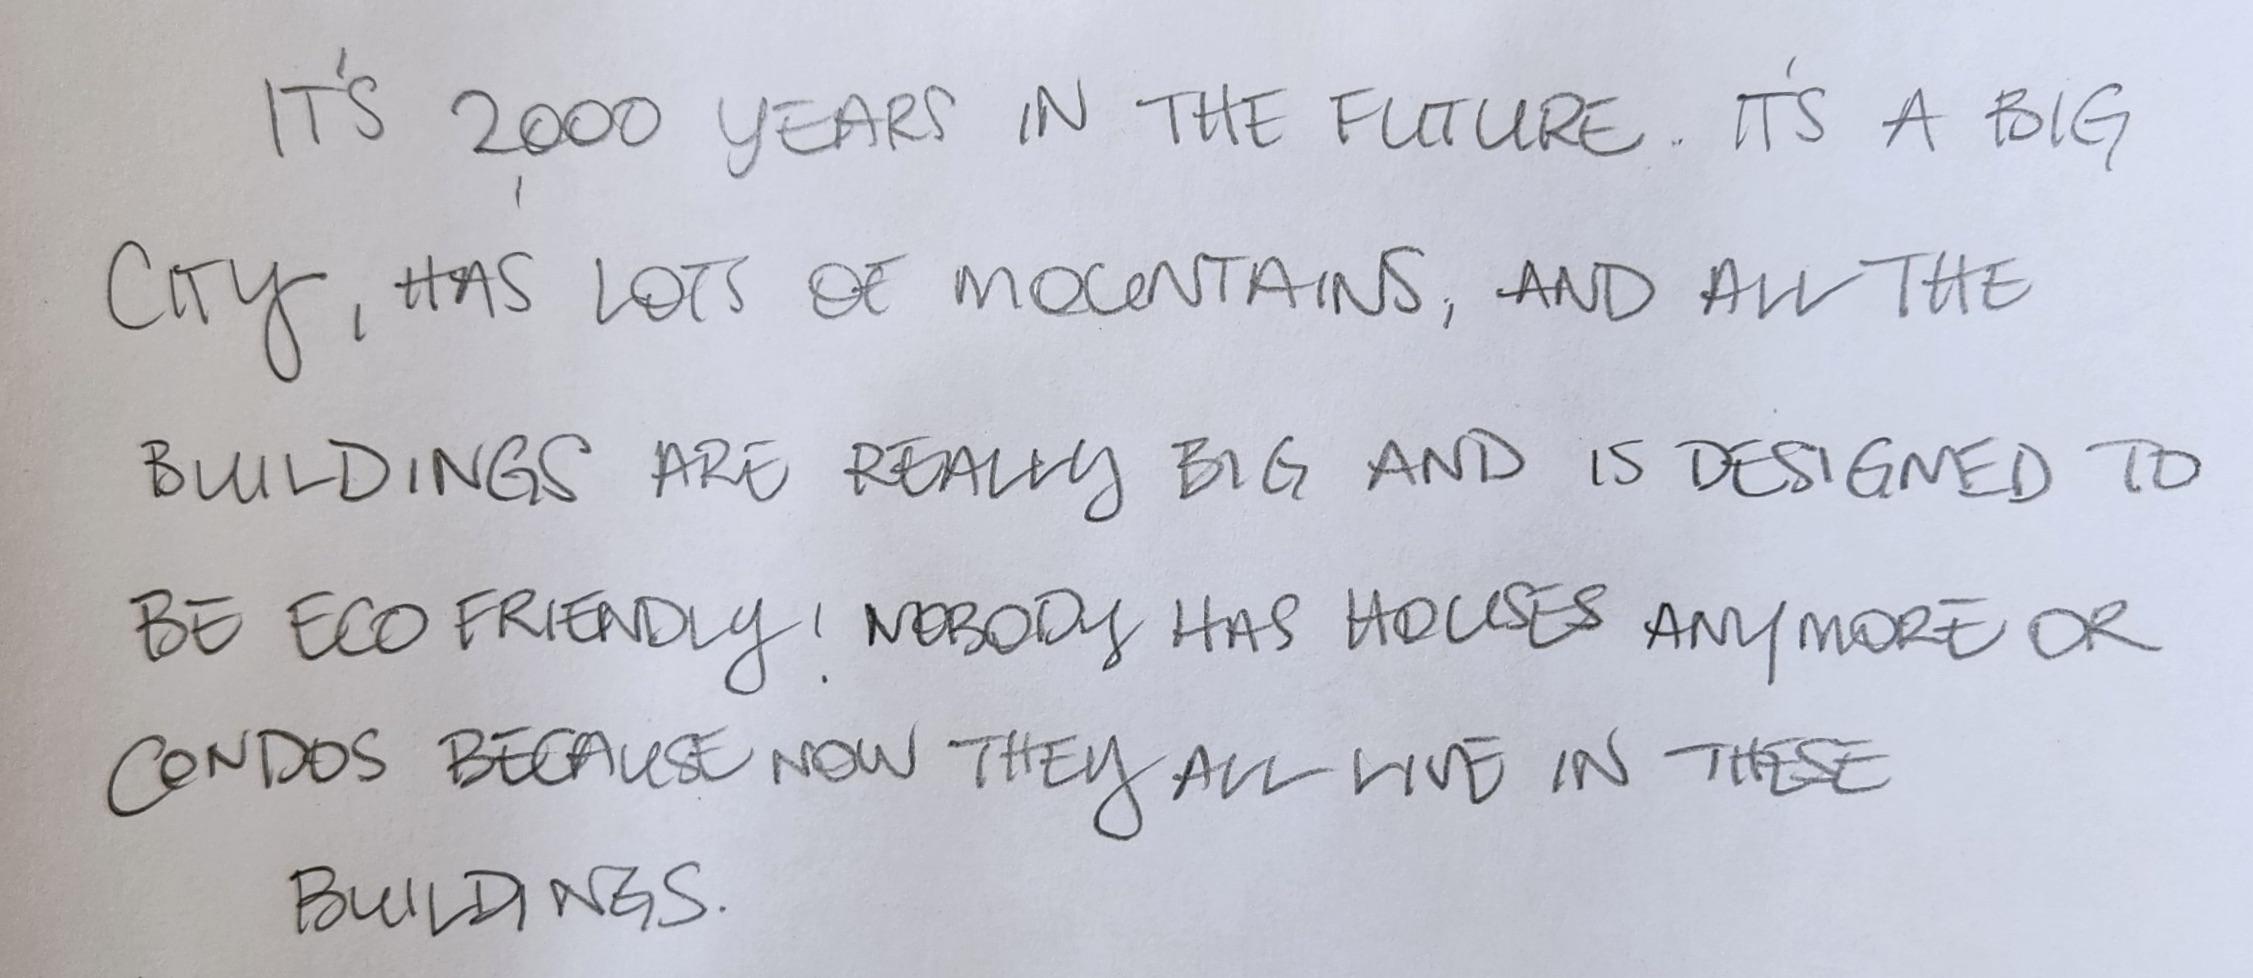 IT'S 2,000 YEARS IN THE FUTURE. IT'S A BIG
CITY, HAS LOTS OF MOUNTAINS, AND ALL THE
BUILDINGS ARE REALLY BIG AND IS DESIGNED TO
BE ECO FRIENDLY! NOBODY HAS HOUSES ANYMORE OR
CONDOS BECAUSE NOW THEY ALL LIVE IN THESE
BUILDINGS.